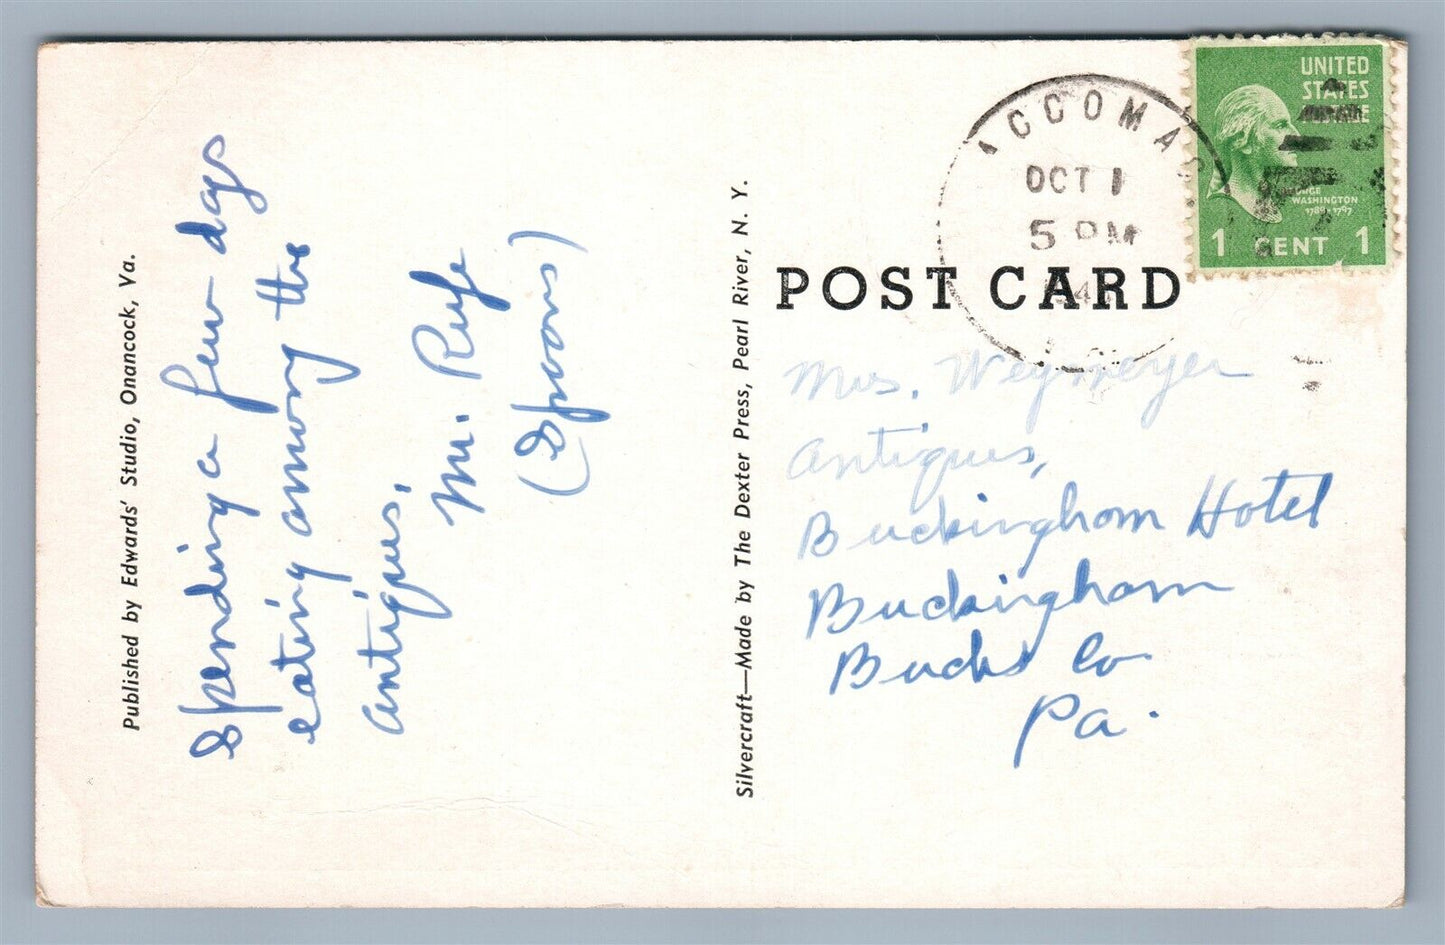 Published by Edwards' Studio, Onancock, Va.
Spending a few days
eating among the
antiques.
M. Rufe
(Spoons)
Silvercraft—Made by The Dexter Press, Pearl River, N. Y.
ACCOMAC
OCT 1
5 PM
UNITED
STATES
WASHINGTON
1789-1797
1 CENT 1
POST CARD
Mrs. Weymeyer
Antiques,
Buckingham Hotel
Buckingham
Bucks Co
Pa.